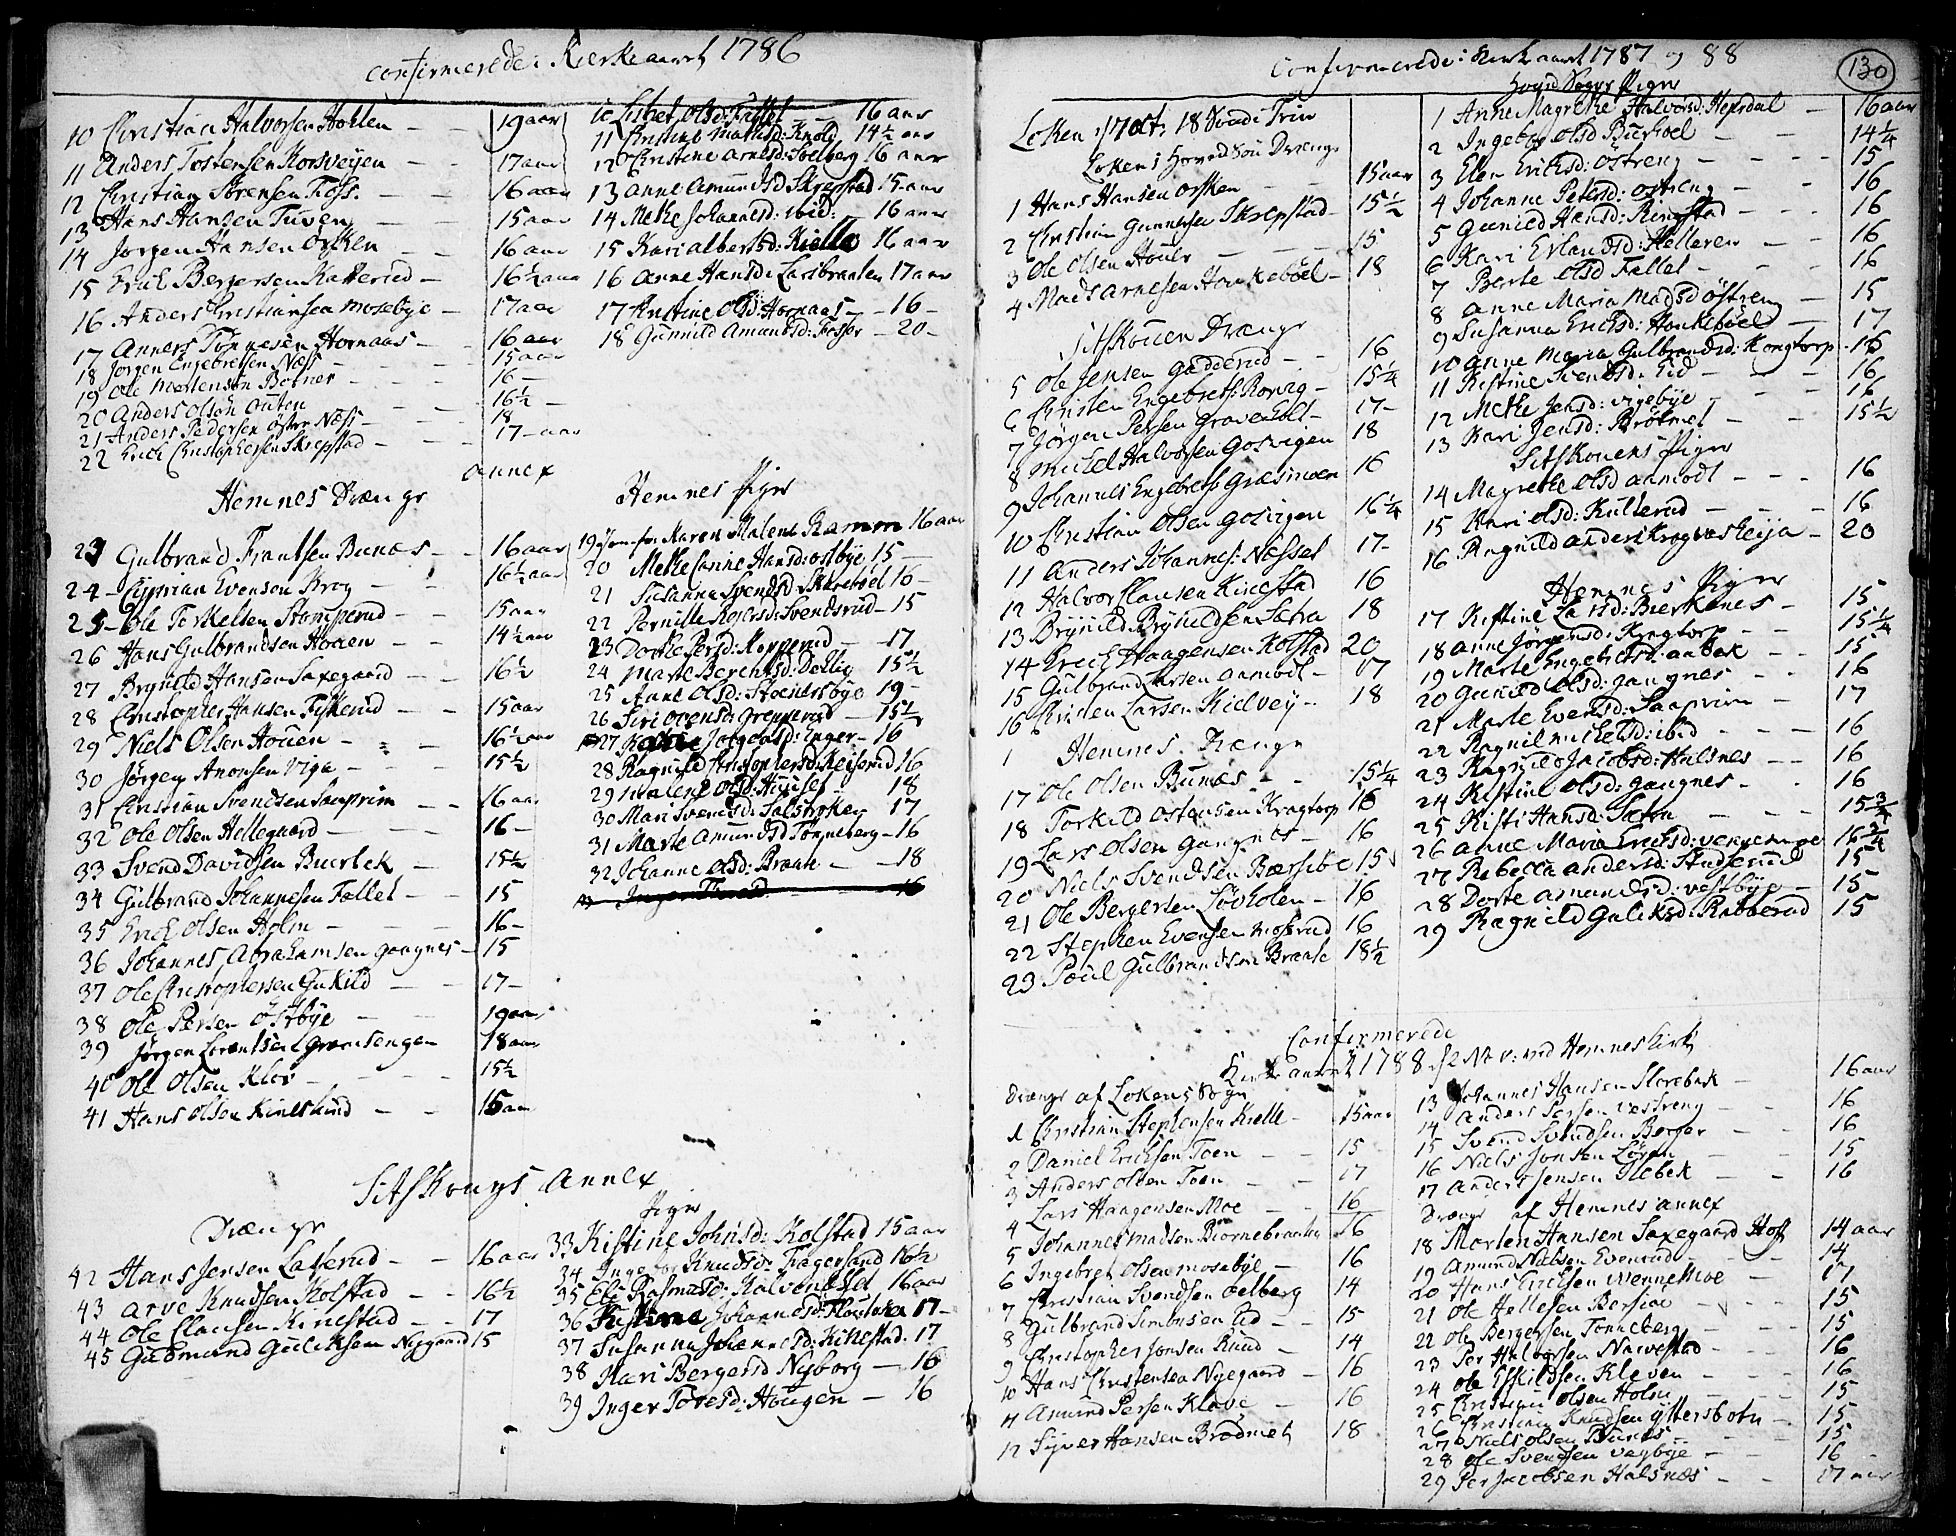 confirmerede i Kierkeaaret 1786
10 Christian Halvorsen Holten 19 aar
11 Anders Tostensen Korsveyen 17 aar
12 Christian Sörensen Foss. 16 aar
13 Hans Hansen Tuven 15 aar
14 Jörgen Hansen Örsken 16 aar
15 Erick Bergersen Katterud 16½ aar
16 Anders Christiansen Mosebye 17 aar
17 Anners Tönnesen Hornaas 16 aar
18 Jörgen Engebretsen Næss 15 aar
19 Ole Mortensen Botner 16
20 Anders Olsön Outen 16½
21 Anders Pedersen östre Næss 18
22 Erich Christophersen Skrepstad 17 aar
10 Lisbet Olsd: Fallet 16 aar
11 Christine Mathisd: Knold 14½ aar
12 Christine Arnesd: Soelberg 16 aar
13 Anne Amundsd Skrepstad 15 aar
14 Mette Johannesd: ibid: 16 aar
15 Kari Albertsd: Kielle 16 aar
16 Anne Hansd: Larsbraaten 17 aar
17 Kristine Olsd: Hornaas 16
18 Gunnild Amundsd: Fosser 20
Annex
Hemnes Drænge
23 Gulbrand Frantsen Bunæs 16 aar
24 Ciprian Evenson Krog 16½ aar
25 Ole Torkelsen Stomperud 15 aar
26 Hans Gulbrandsen Houen 14½ aar
27 Brynild Hansen Saxegaard 16½
28 Christopher Hansen Fiskerud 15 aar
29 Niels Olsen Houen 16½ aar
30 Jörgen Aronsen Viga 15½
31 Christian Svendsen Saaprim 16 aar
32 Ole Olsen Hellegaard 16
33 Svend Davidsen Buerbek 15½
34 Gulbrand Johannesen Fallet 15
35 Erich Olsen Holm 16
36 Johannes Abrahamsen Gangnes 15
37 Ole Christophersen Gukild 17
38 Ole Persen Östbye 19 aar
39 Jörgen Lorentsen Gramsengen 18 aar
40 Ole Olsen Klev 15½
41 Hans Olsen Kinestund 15 aar
Hemnes Piger
19 Jomfr. Karen Malene Ramm 16 aar
20 Mette Carine Hansd: Ostbye 15
21 Susanna Svendsd Skårebøel 16
22 Pernille Rolersd: Svendsrud 15
23 Dorthe Persd: Kopperud 17
24 Marte Berentsd: Dehlig 15½
25 Anne Olsd: Stoenersbye 19
26 Siri Ovensd: Grepperud 15½
27 Joegensd: Enger 16
28 Ragnild Christophersd: Reiserud 16
29 Malene Olsd: 18
30 Mari Svensd: Salsbroken 17
31 Marte Amundsd Tønneberg 16
32 Johanne Olsd: Braate 18
33 Inger 16
Sitskougs Annex
Drænge
42 Hans Jensen Laberud 16 aar
43 Arve Knudsen Kolstad 16½
44 Ole Clausen Kinestad 17
45 Gudmund Guliksen Nygaard 15
Piger
33 Kistine Johnsd: Kolstad 15 aar
34 Ingebor Knudsd: Fagerland 16½
35 Eli Rasmusd: Kalvenesset 16 aar
36 Kistine Johannesd: 17
37 Susanna Johannesd: Kinestad 17
38 Kari Bergersd Nyborg 16
39 Inger Toresd: Hougen 16
Confirmerede i Kierkeaaret 1787 og 88
130
Løken 7 Oct: 18 Sönd: Trin
Løkens Hoved Sou Drænge
1 Hans Hansen Orsken 15 aar
2 Christian Gunnersen Skrepstad 15½
3 Ole Olsen Houer 15
4 Mads Arnesen Honkebøel 18
Sitskouen Drænge
5 Ole Jensen Gadderud 16
6 Christen Engebrets: Rorvig 15¼
7 Jörgen Persen Gravenholt 17
8 Michel Halvorsen Golvigen 18
9 Johannes Engebrets Græsmoen 16
10 Christian Olsen Golvigen 16¼
11 Anders Johannes: Næsset 17
12 Halvor Hansen Kinestad 16
13 Brynild Brynildsen Sætra 18
14 Erich Haagensen Kolstad 20
15 Gulbrand Larsen Aamodt 17
16 Kristen Larsen Kielvey 18
1 Hemnes Drænge
17 Ole Olsen Bunæs 15¼
18 Torkild Ostensen Kragtorp 16
19 Lars Olsen Gangnes 16
20 Niels Svendsen Bærsibe 15
21 Ole Bergersen Løvholen 16
22 Stephen Evensen Mosrud 16
23 Poul Gulbrandsen Braate 18½
Hoved Sogns Piger
1 Anne Magrethe Halvorsd: Hersdal 16 aar
2 Ingebor Olsd Bierkel 14¼
3 Elen Ericksd: Östreng 15
4 Johanne Petersd: Ostreng 16
5 Gunild Hansd: Ringstad 16
6 Kari Erlandsd: Helleren 16
7 Berte Olsd Fallet 16
8 Anne Maria Madsd Östreng 15
9 Susanna Ericksd: Honkebøel 17
10 Anne Maria Gulbrandsd: Kongtorp 16
11 Kistine Svendsd: Lid 16
12 Mette Jensd: Vigebye 16
13 Kari Jensd: Brødmet 15½
Sitskouens Piger
14 Magrethe Olsd Aamodt 16
15 Kari Olsd: Kulterud 16
16 Ragnild Anders Krogvaskeija 20
Hemnes Piger
17 Kistine Larsd: Bierkenes 15
18 Anne Jörgensd: Kragtorp 15¼
19 Marte Engebretsd: Aabek 15
20 Gunild Olsd: Gangnes 16
21 Marte Evensd: Saaprim 17
22 Ragnil Mickelsd: ibid 16
23 Ragnild Jacobsd: Halsnes 16
24 Kistine Olsd: Gangnes 16
25 Kisti Hansd: Sætra 15¾
26 Anne Maria Ericksd: Vennemoe 16¾
27 Rebecca Andersd: Studserud 15
28 Dorte Amundsd: Vestbye 15
29 Ragnild Guliksd: Rabberud 15
Confirmerede
Kirkeaaret 1788 d 2 Nov: ved Hemnes Kirke
Drænge af Løkens Sogn
1 Christian Stephensen Kielle 15 aar
2 Daniel Ericksen Toen 15
3 Anders Olsen Toen 17
4 Lars Haagensen Moe 16
5 Johannes Madsen Biörnebraaten 16
6 Ingebret Olsen Mosebye 16
7 Christian Svendsen Oelberg 14
8 Gulbrand Simensen Lid 15
9 Christopher Jonsen Knud 14
10 Hans Christensen Nyegaard 16
11 Amund Persen Kløve 16
12 Syver Hansen Brødmet 18
13 Johannes Hansen Storebek 16 aar
14 Anders Persen Vestreng 16
15 Svend Svendsen Berger 16
16 Niels Jonsen Løren 15
17 Anders Jensen Ulebek 16
Drænge af Hemnes Annex
18 Morten Hansen Saxegaard Hoff 14 aar
19 Amund Nielsen Evenrud 14
20 Hans Ericksen Wennemoe 17
21 Ole Hellesen Bersioe 15
22 Ole Bergersen Tonneberg 15
23 Per Halvorsen Navestad 16
24 Ole Eskildsen Kleven 16
25 Christian Olsen Holm 15
26 Christian Knudsen Yttersbotn 15
27 Niels Olsen Bunes 15
28 Ole Svendsen Vagbye 16
29 Per Jacobsen Halsnæs 17 aar